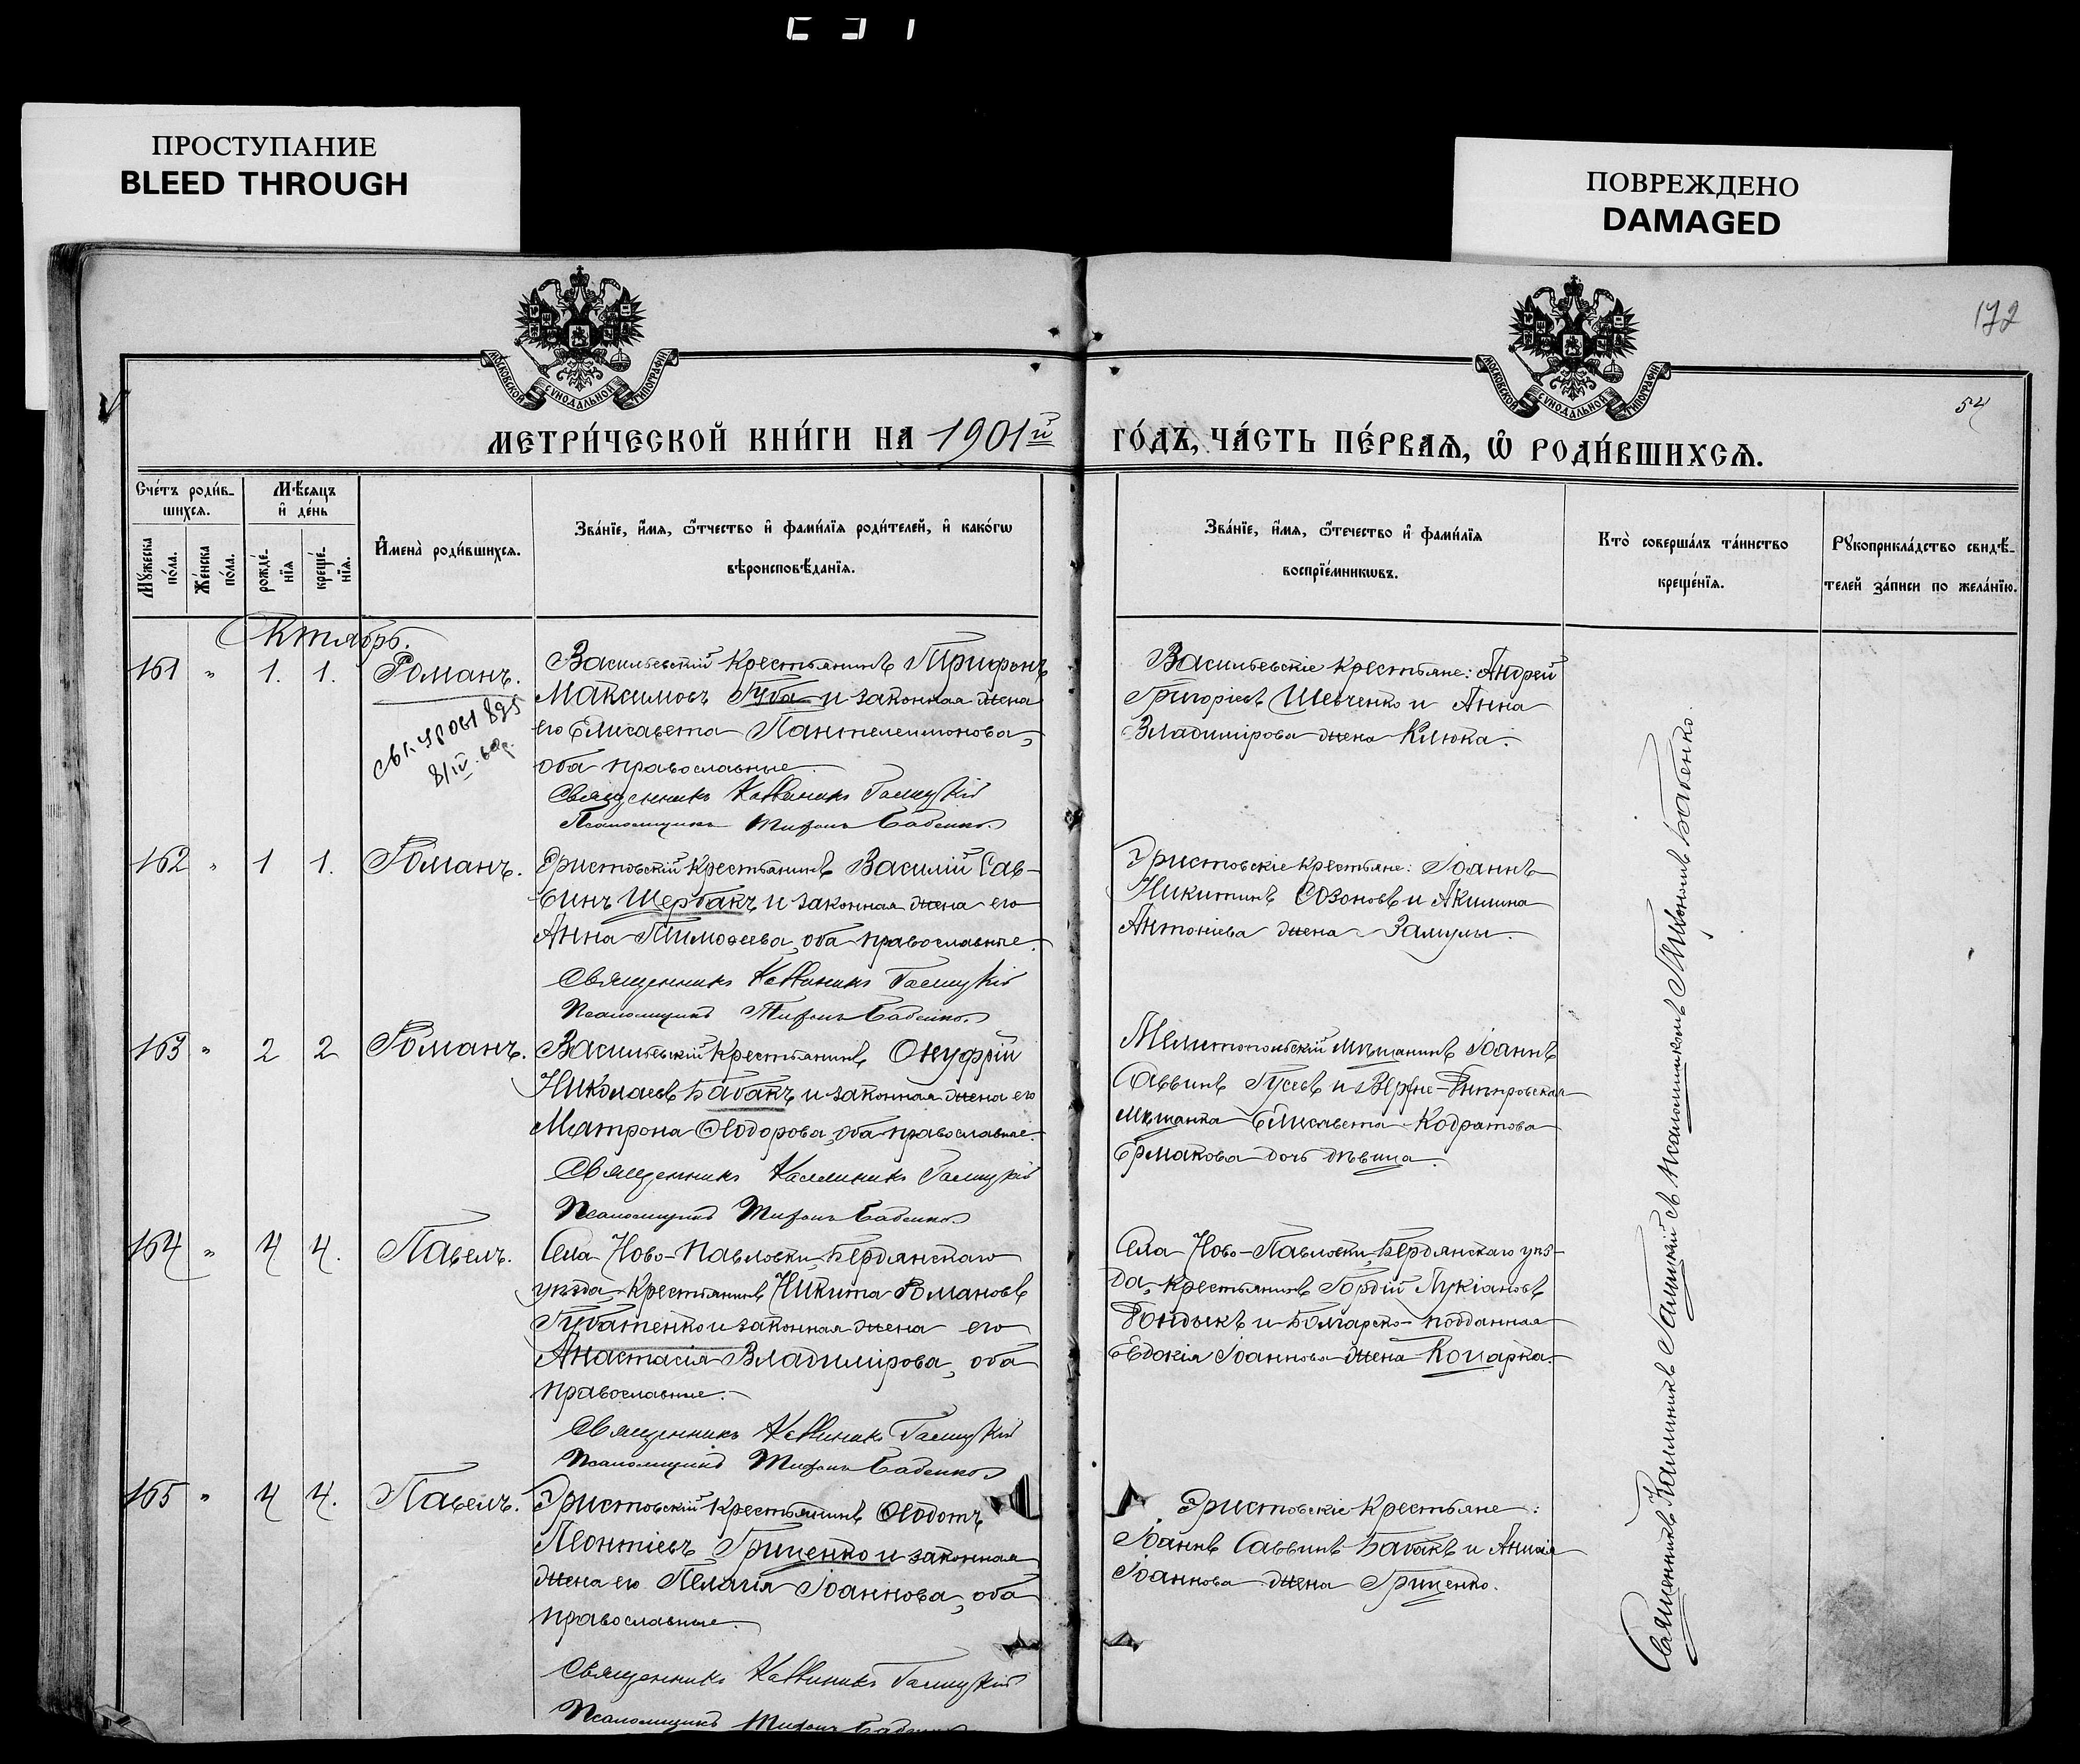 ПРОСТУПАНИЕ
BLEED THROUGH
ПОВРЕЖДЕНО
DAMAGED
172
54
МОСКОВСКОЙ СѴНОДАЛЬНОЙ ТИПОГРАФІИ
МОСКОВСКОЙ СѴНОДАЛЬНОЙ ТИПОГРАФІИ
МЕТРИ́ЧЕСКОЙ КНИ́ГИ НА 1901й
ГО́ДЪ, ЧА́СТЬ ПЕ́РВАѦ, Ѡ҆ РОДИ́ВШИХСѦ.
Сче́тъ роди́в-
шихсѧ.
Мѣ́сѧцъ
и҆ де́нь
Мꙋ́жеска
по́ла.
Же́нска
по́ла.
рожде́-
нїѧ
креще́-
нїѧ.
И҆мена̀ роди́вшихсѧ.
Зва́нїе, и҆́мѧ, ѻ҆́тчество и҆ фами́лїѧ роди́телей, и҆ како́гѡ
вѣроисповѣ́данїѧ.
Зва́нїе, и҆́мѧ, ѻ҆́течество и҆ фами́лїѧ
воспрїе́мникѡвъ.
Кто̀ соверша́лъ та́инство
креще́нїѧ.
Рꙋкоприкла́дство свидѣ́-
телей за́писи по жела́нїю.
Октябрь.
161 " 1. 1. Романъ.
8/IV.
Васильевскій крестьянинъ Трифонъ
Максимовъ Губа и законная жена
его Елисавета Пантелеимонова,
оба православные.
Священникъ Каллиникъ Галицкій
Псаломщикъ Тифонъ Бабенко.
Васильевскіе крестьяне: Андрей
Григоріевъ Шевченко и Анна
Владимірова жена Клюка.
162 " 1 1. Романъ.
Эристовскій крестьянинъ Василій Сав-
винъ Щербакъ и законная жена его
Анна Тимоѳеева, оба православные.
Священникъ Каллиникъ Галицкій
Псаломщикъ Тифонъ Бабенко.
Эристовскіе крестьяне: Іоаннъ
Никитинъ Созоновъ и Акилина
Антоніева жена Замулы.
163 " 2 2 Романъ.
Васильевскій крестьянинъ Онуфрій
Николаевъ Бабакъ и законная жена его
Матрона Ѳеодорова, оба православные.
Священникъ Каллиникъ Галицкій
Псаломщикъ Тифонъ Бабенко
Мелитопольскій мѣщанинъ Іоаннъ
Саввинъ Гусевъ и Верхне-Днѣпровская
мѣщанка Елисавета Кодратова
Ермакова дочь дѣвица.
164 " 4 4. Павелъ.
Села Ново-Павловки, Бердянскаго
уѣзда, крестьянинъ Никита Романовъ
Губатенко и законная жена его
Анастасія Владимірова, оба
православные.
Священникъ Каллиникъ Галицкій
Псаломщикъ Тифонъ Бабенко
Села Ново-Павловки, Бердянскаго уѣз-
да, крестьянинъ Гордій Лукіановъ
Гондыкъ и Болгарско-подданная
Евдокія Іоаннова жена Коцарка.
165 " 4 4. Павелъ.
Эристовскій крестьянинъ Ѳеодотъ
Леонтіевъ Гриценко и законная
жена его Пелагія Іоаннова, оба
православные.
Священникъ Каллиникъ Галицкій
Псаломщикъ Тифонъ Бабенко
Эристовскіе крестьяне:
Іоаннъ Саввинъ Бабакъ и Анисія
Іоаннова жена Гриценко.
Священникъ Каллиникъ Галицкій съ псаломщикомъ Тифономъ Бабенко.